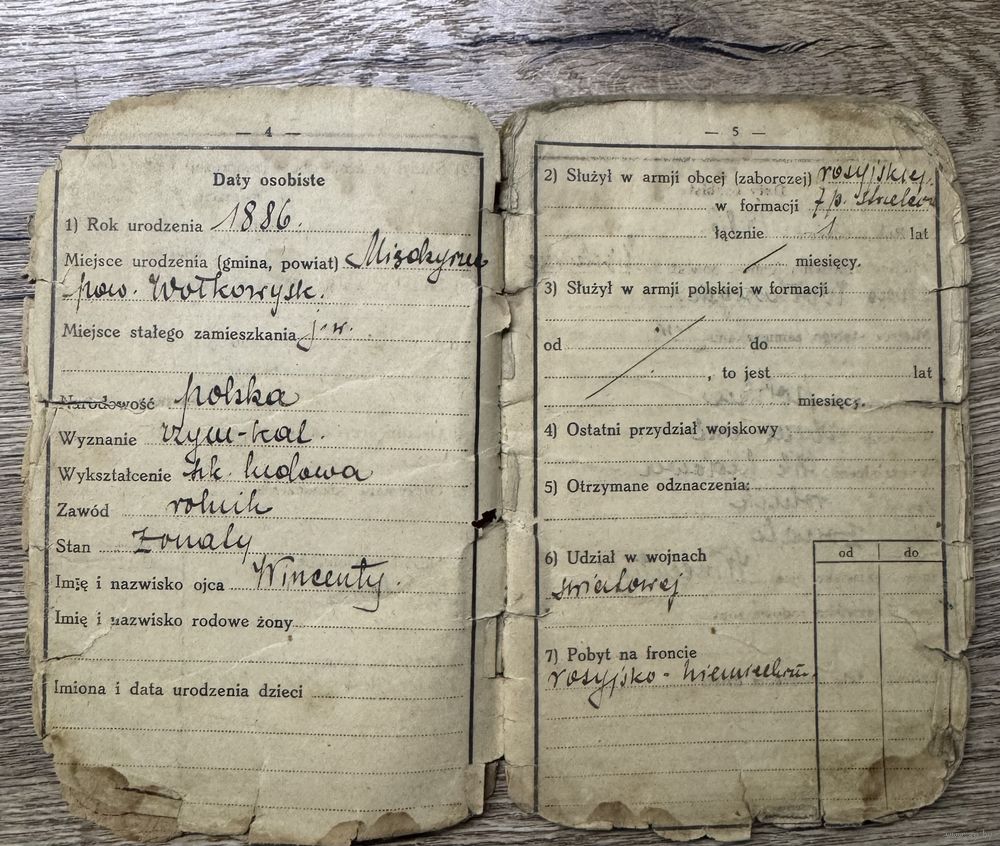 — 4 —
Daty osobiste
1) Rok urodzenia 1886.
Miejsce urodzenia (gmina, powiat)
pow. Wołkowysk.
Miejsce stałego zamieszkania j. w.
Narodowość polska
Wyznanie rzym-kat.
Wykształcenie szk. ludowa
Zawód rolnik
Stan żonaty
Imię i nazwisko ojca Wincenty.
Imię i nazwisko rodowe żony
Imiona i data urodzenia dzieci
— 5 —
2) Służył w armji obcej (zaborczej) rosyjskiej
w formacji 7 p.
łącznie 1 lat
miesięcy.
3) Służył w armji polskiej w formacji
od do
, to jest lat
miesięcy.
4) Ostatni przydział wojskowy
5) Otrzymane odznaczenia:
6) Udział w wojnach
od do
światowej
7) Pobyt na froncie
rosyjsko-niemieckim.